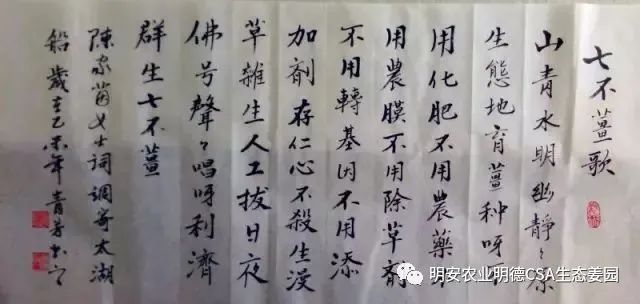 七不薑歌
山青水明幽靜々原
生態地育薑种呀不
用化肥不用農藥不
用農膜不用除草剤
不用轉基因不用添
加剤存仁心不殺生漫
草雜生人工拔日夜
佛号聲々唱呀利濟
群生七不薑
陳家茵女士詞調寄太湖
船歲在乙未年青
明安农业明德CSA生态姜园